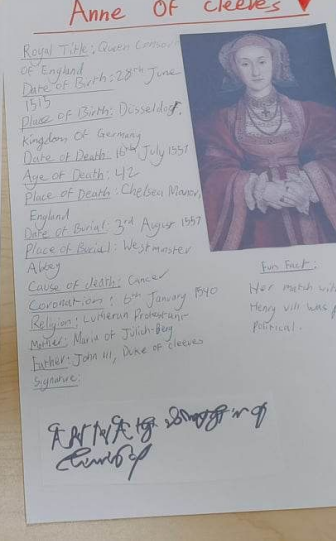 Anne Of Cleeves
Royal Title: Queen Consort
of England
Date of Birth: 28th June
1515
Place of Birth: Düsseldorf,
Kingdom Of Germany
Date of Death: 16th July 1557
Age of Death: 42
Place of Death: Chelsea Manor,
England
Date of Burial: 3rd August 1557
Place of Burial: Westminster
Abbey
Cause of death: Cancer
Coronation: 6th January 1540
Religion: Lutheran Protestant
Mother: Maria of Jülich-Berg
Father: John III, Duke of Cleeves
Signature:
Fun Fact:
Her match with
Henry VIII was
Political.